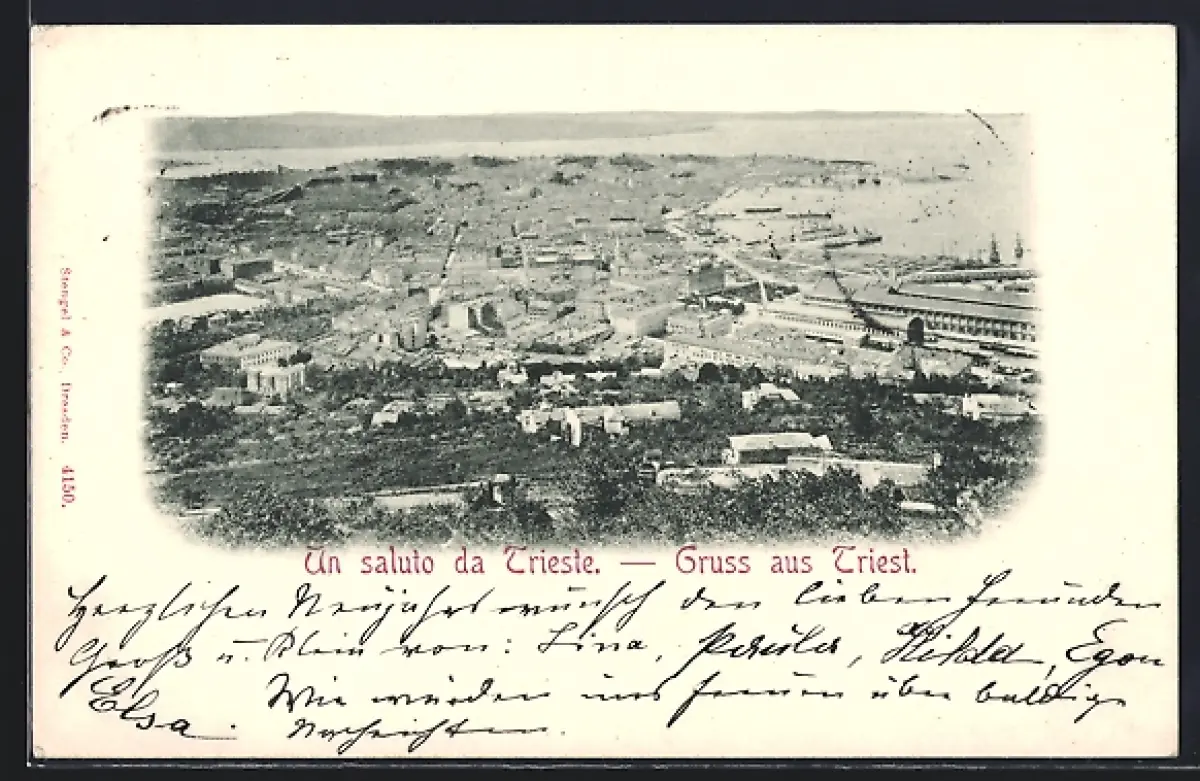 Un saluto da Trieste. — Gruss aus Triest.
Stengel & Co., Dresden. 4150.
Herzlichen Neujahrswunsch den lieben Freunden
Groß u. Klein von: Lina, Paula, Hilda, Egon
Elsa. Wie würden uns freuen über baldige
Nachrichten.